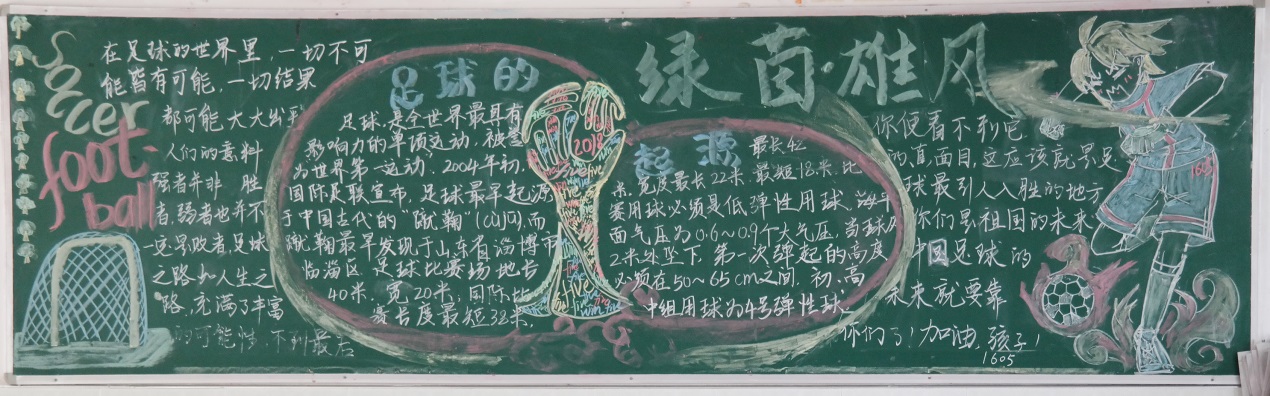 绿茵·雄风
soccer
foot-
ball
在足球的世界里,一切不可
能皆有可能,一切结果
都可能大大出乎
人们的意料
强者并非 胜
者,弱者也并不
一定是败者足球
之路如人生之
路,充满了丰富
的可能性,不到最后
足球的
足球,是全世界最具有
影响力的单项运动,被誉
为世界第一运动.2004年初,
国际足联宣布,足球最早起源
于中国古代的“蹴鞠”(cùjū),而
蹴鞠最早发现于山东省淄博市
临淄区.足球比赛场地长
40米,宽20米,国际比
赛长度最短38米,
2018
起源
最长42
米,宽度最长22米,最短18米.比
赛用球必须是低弹性用球.海平
面气压为0.6~0.9个大气压.当球从
2米坠下,第一次弹起的高度
必须在50~65cm之间,初、高
中组用球为4号弹性球.
你便看不到它
的真面目,这应该就是足
球最引人入胜的地方
你们是祖国的未来
中国足球的
未来就要靠
你们了!加油,孩子!
1605